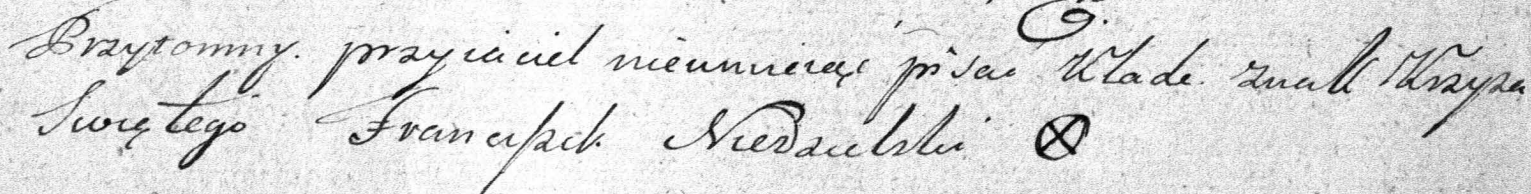 Przytomny. przyiaciel nieumieiąc pisac Kłade. znak Krzyza
Swiętego Franciszek Niedzielski